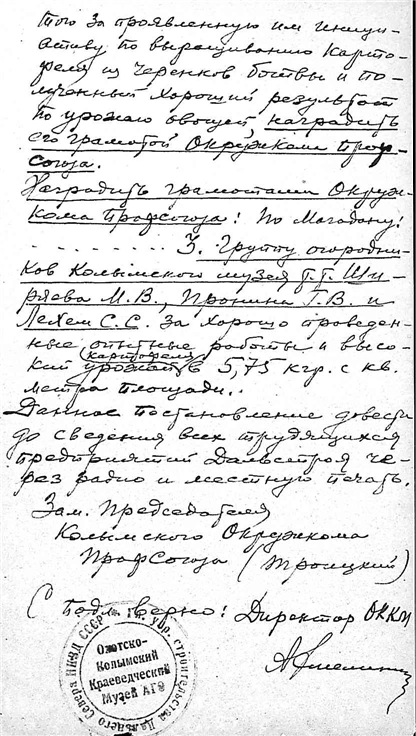 того за проявленную им иници-
ативу по выращиванию карто-
феля из черенков ботвы и по-
лученный хороший результат
по урожаю овощей, наградить
его грамотой Окружкома проф-
союза.
Наградить грамотами Окруж-
кома профсоюза: по Магадану:
. . . . . . . . . . 3. Группу огородни-
ков Колымского музея т.т. Ши-
ряева М.В., Пронина Г.В. и
Лехем С.С. за хорошо проведен-
ные опытные работы и высо-
кий урожай картофеля в 5,75 кгр. с кв.
метра площади..
Данное постановление довести
до сведения всех трудящихся
предприятий Дальстроя че-
рез радио и местную печать.
Зам. Председателя
Колымского Окружкома
Профсоюза (Троицкий)
С подл. верно: Директор ОККМ
Охотско-
Колымский
Краеведческий
Музей
НКВД СССР
упр. строительства Дальнего Севера